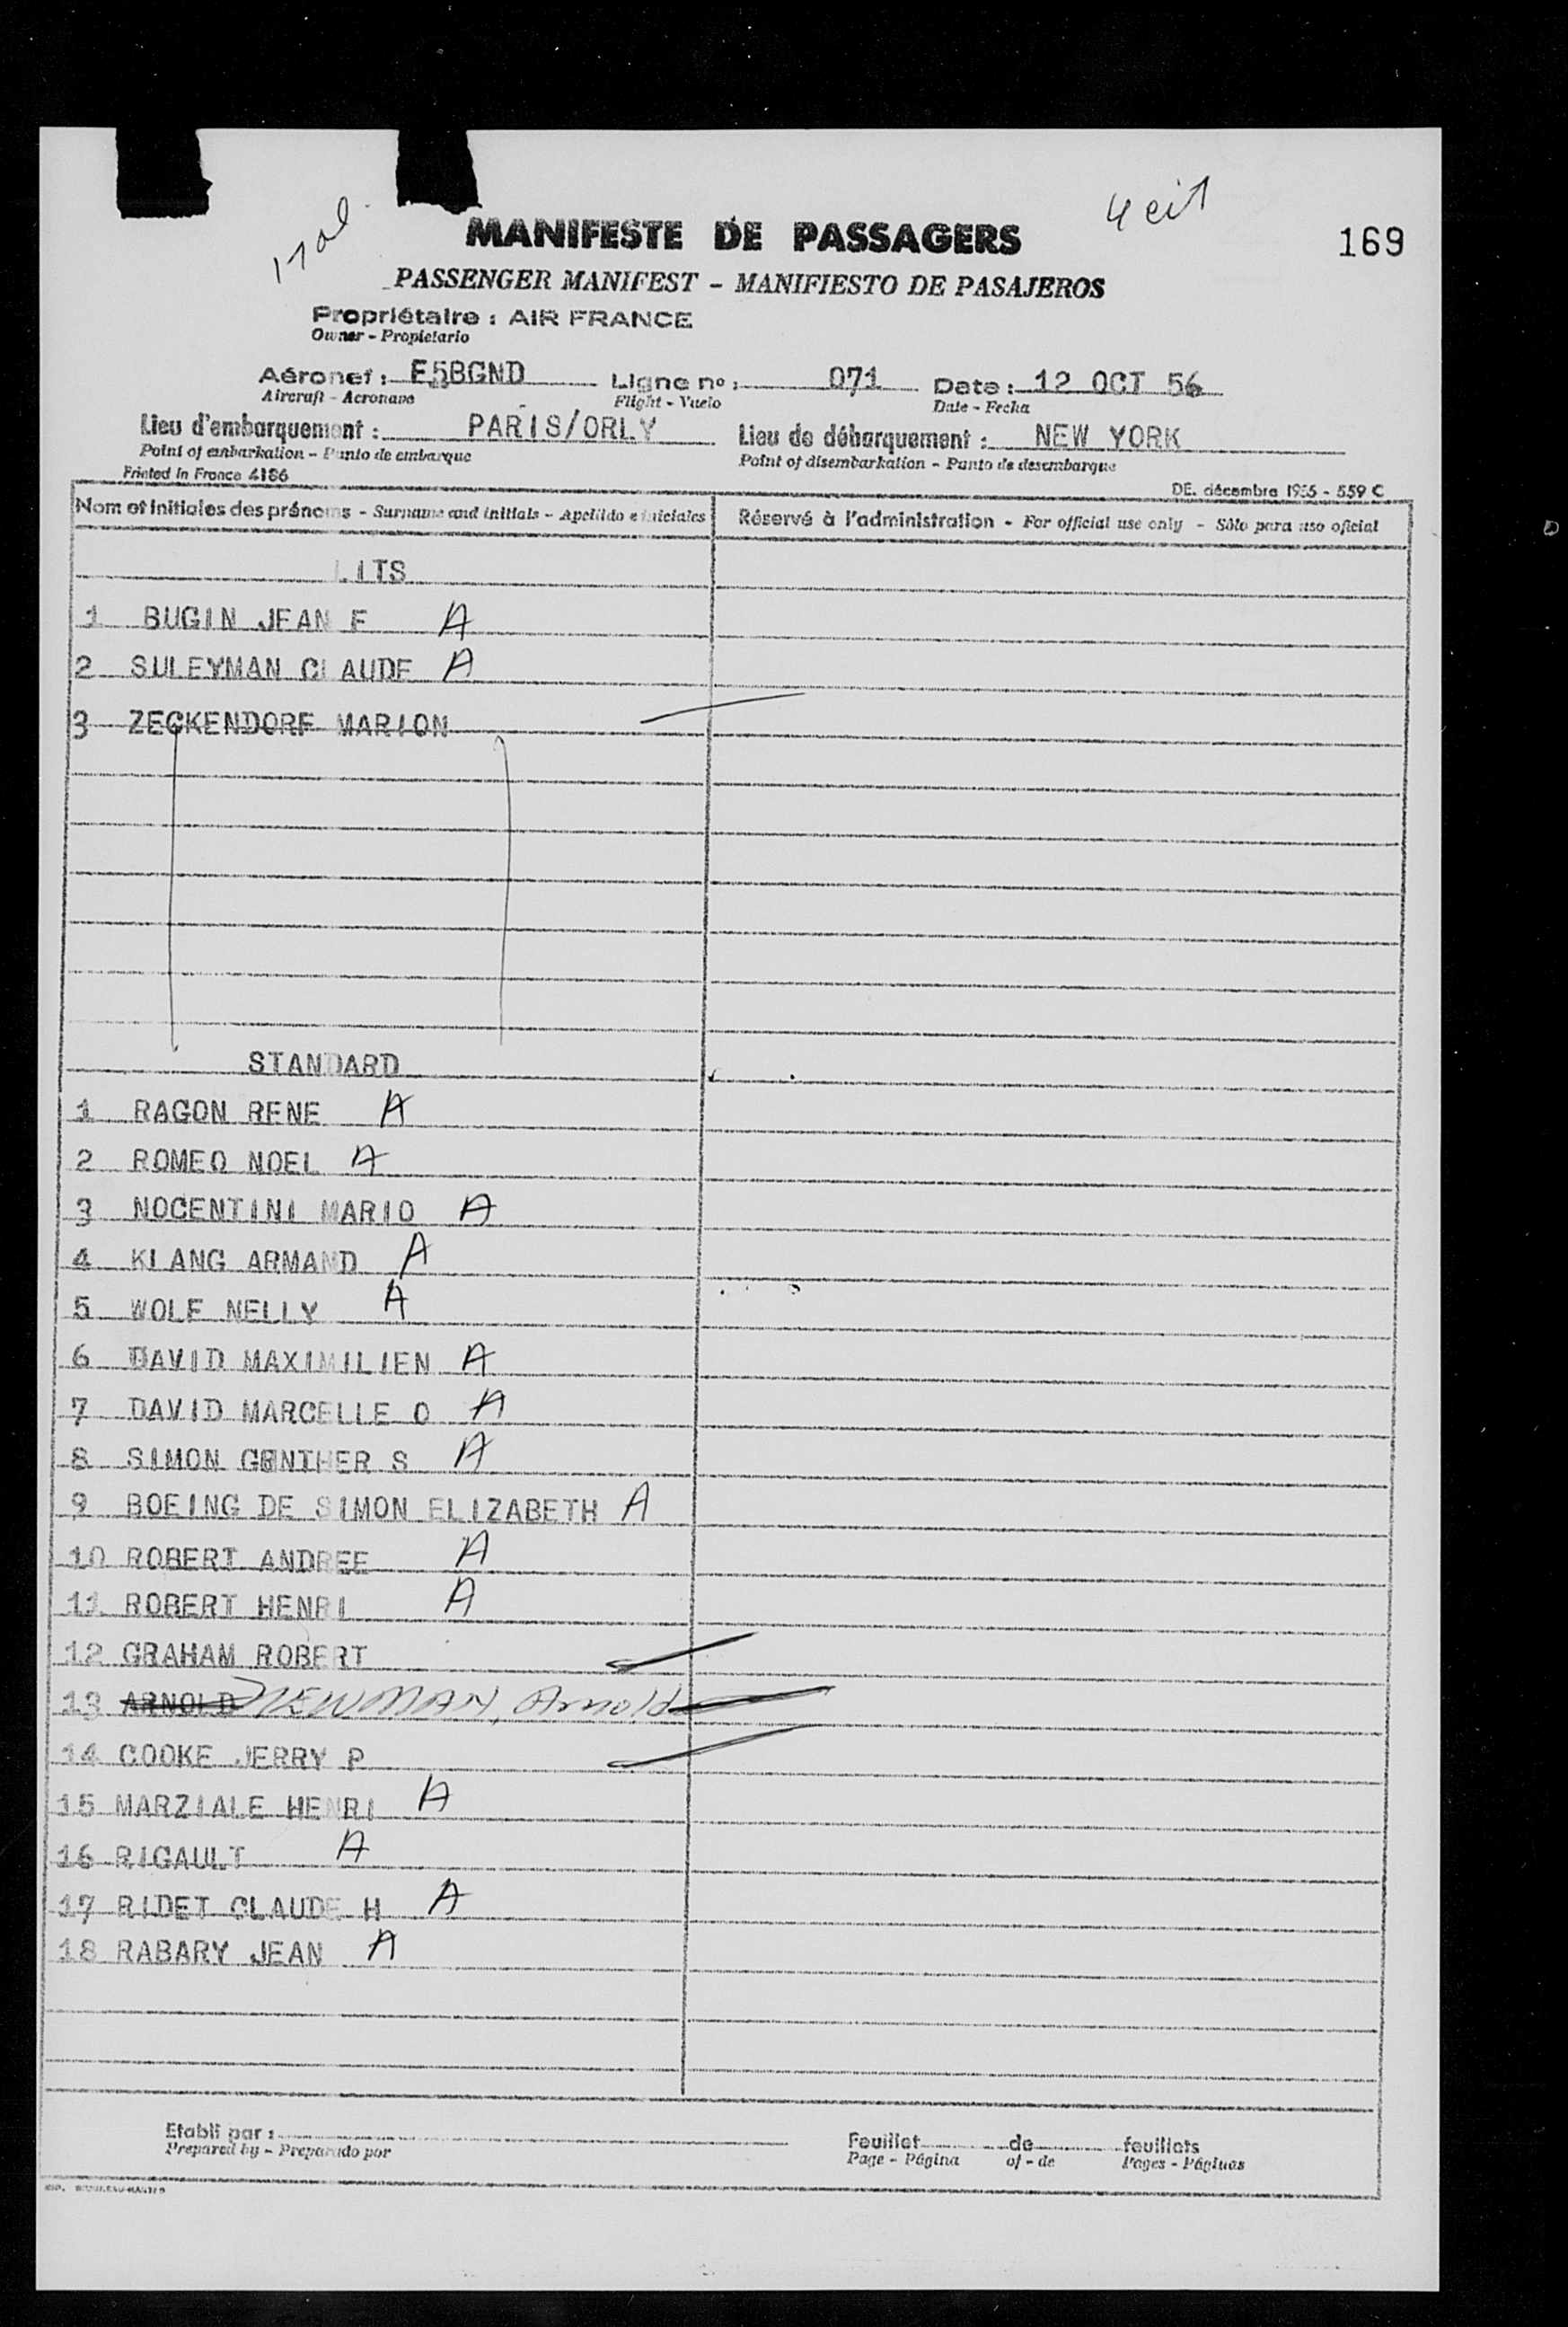 17 al
4 cit
MANIFESTE DE PASSAGERS
169
PASSENGER MANIFEST - MANIFIESTO DE PASAJEROS
Propriétaire : AIR FRANCE
Owner - Propietario
Aéronef : F5BGND Ligne nº : 071 Date : 12 OCT 56
Aircraft - Aeronave Flight - Vuelo Date - Fecha
Lieu d'embarquement : PARIS/ORLY Lieu de débarquement : NEW YORK
Point of embarkation - Punto de embarque Point of disembarkation - Punto de desembarque
Printed in France 4186 DE. décembre 1955 - 559 C
Nom et initiales des prénoms - Surname and initials - Apellido e iniciales Réservé à l'administration - For official use only - Sólo para uso oficial
LITS
1 BUGIN JEAN F A
2 SULEYMAN CLAUDE A
3 ZECKENDORF MARION
STANDARD
1 RAGON RENE A
2 ROMEO NOEL A
3 NOCENTINI MARIO A
4 KLANG ARMAND A
5 WOLF NELLY A
6 DAVID MAXIMILIEN A
7 DAVID MARCELLE O A
8 SIMON GUNTHER S A
9 BOEING DE SIMON ELIZABETH A
10 ROBERT ANDREE A
11 ROBERT HENRI A
12 GRAHAM ROBERT
13 ARNOLD NEWMAN, Arnold
14 COOKE JERRY P
15 MARZIALE HENRI A
16 RIGAULT A
17 RIDET CLAUDE H A
18 RABARY JEAN A
Etabli par :
Prepared by - Preparado por
Feuillet de feuillets
Page - Página of - de Pages - Páginas